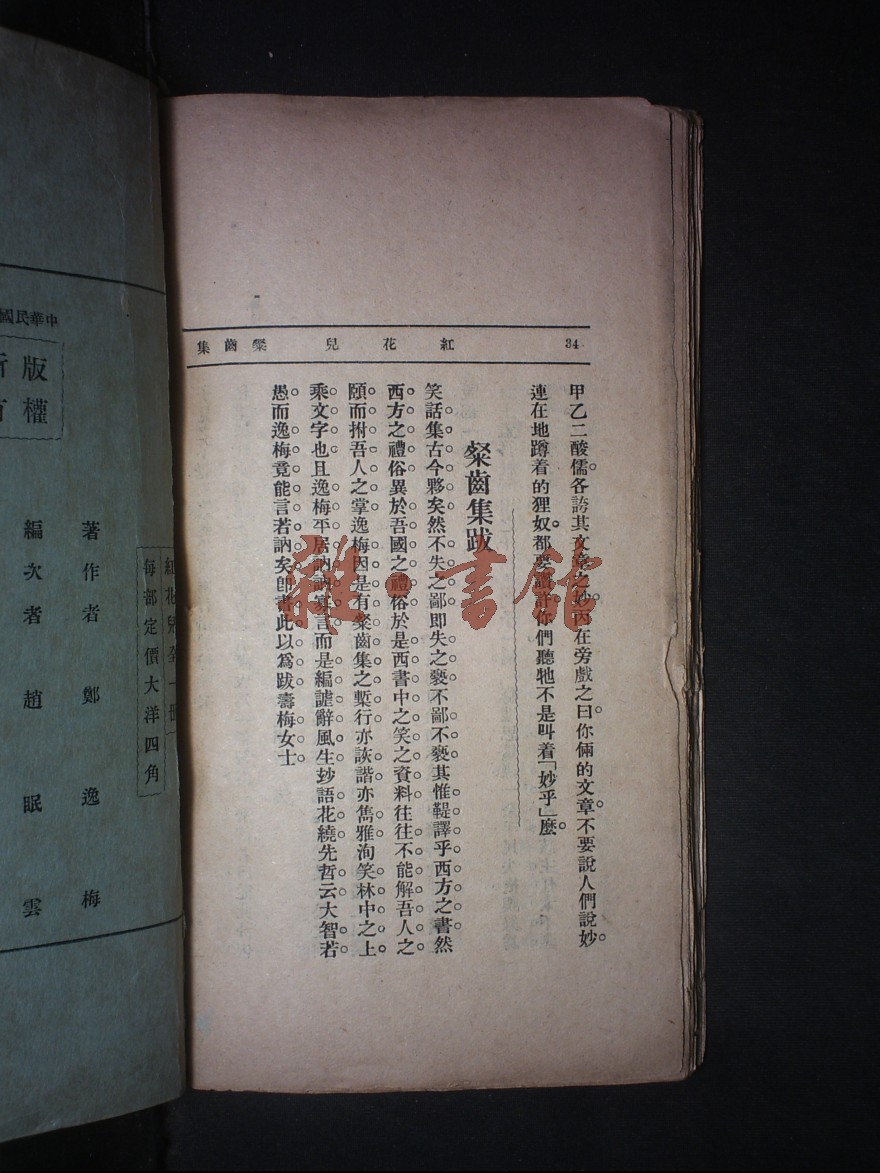 34 紅花兒 粲齒集
甲乙二酸儒。各誇其文章之妙。丙在旁戲之曰你倆的文章不要說人們說妙。
連在地蹲着的狸奴。都要讚許。你們聽牠不是叫着「妙乎」麼。
粲齒集跋
笑話集古今夥矣然不失之鄙即失之褻不鄙不褻其惟鞮譯乎西方之書然
西方之禮俗異於吾國之禮俗於是西書中之笑之資料往往不能解吾人之
頤而拊吾人之掌逸梅因是有粲齒集之槧行亦詼諧亦雋雅洵笑林中之上
乘文字也且逸梅平居訥訥寡言而是編謔辭風生妙語花繞先哲云大智若
愚而逸梅竟能言若訥矣卽書此以爲跋壽梅女士
雜·書館
中華民國
版權
紅花兒全一冊
每部定價大洋四角
著作者 鄭逸梅
編次者 趙眠雲